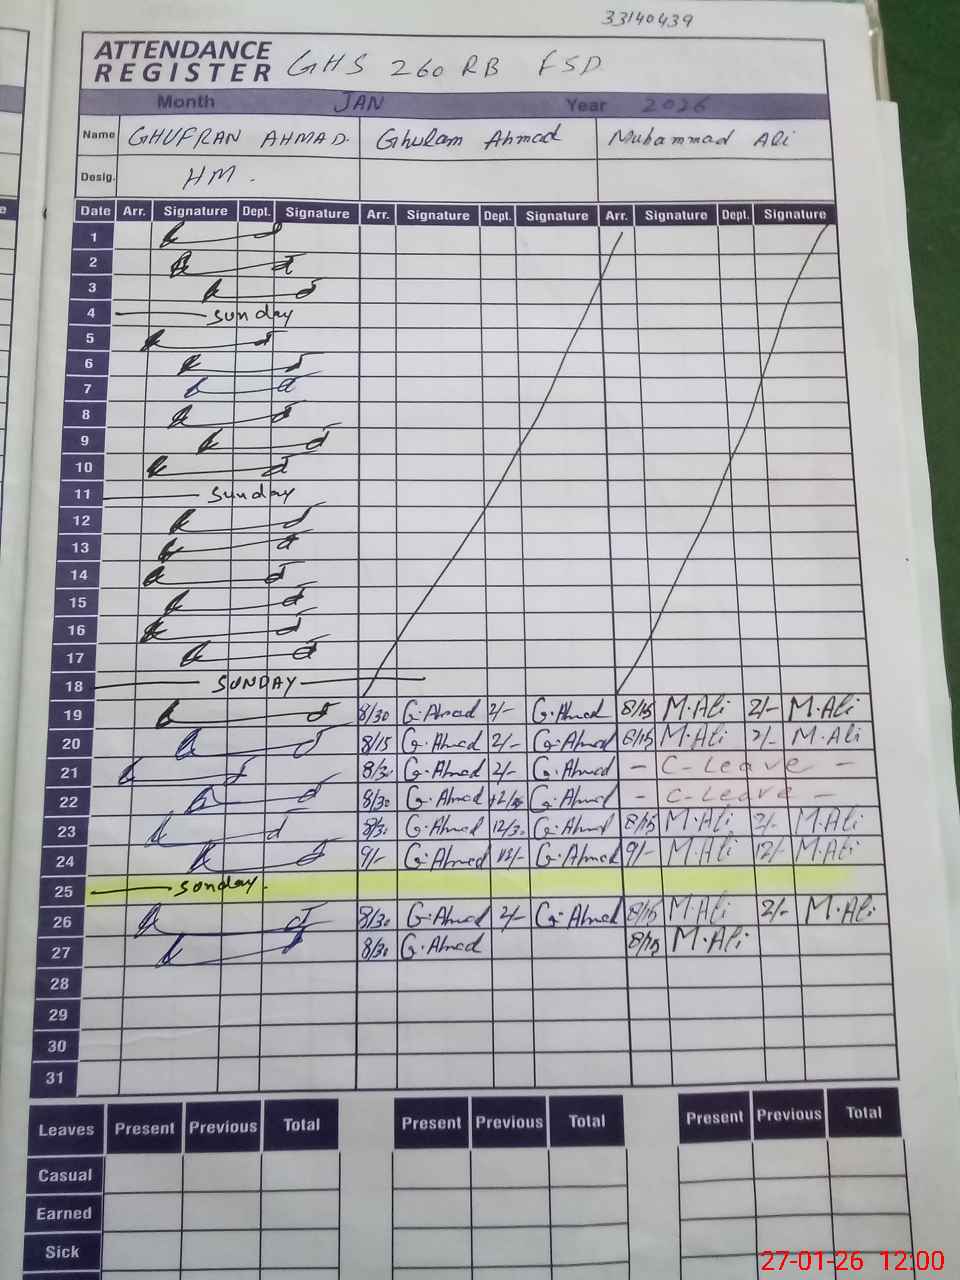 33140439
ATTENDANCE REGISTER GHS 260 RB FSD
Month JAN Year 2026
Name GHUFRAN AHMAD. Ghulam Ahmad Muhammad Ali
Desig. HM.
Date Arr. Signature Dept. Signature Arr. Signature Dept. Signature Arr. Signature Dept. Signature
1
2
3
4 Sunday
5
6
7
8
9
10
11 Sunday
12
13
14
15
16
17
18 SUNDAY
19 8/30 G.Ahmad 2/- G.Ahmad 8/15 M.Ali 2/- M.Ali
20 8/15 G.Ahmad 2/- G.Ahmad 8/15 M.Ali 2/- M.Ali
21 8/30 G.Ahmad 2/- G.Ahmad - C-Leave -
22 8/30 G.Ahmad 12/30 G.Ahmad - C-Leave -
23 8/30 G.Ahmad 12/30 G.Ahmad 8/15 M.Ali 2/- M.Ali
24 9/- G.Ahmad 12/- G.Ahmad 9/- M.Ali 12/- M.Ali
25 Sunday.
26 8/30 G.Ahmad 2/- G.Ahmad 8/15 M.Ali 2/- M.Ali
27 8/30 G.Ahmad 8/15 M.Ali
28
29
30
31
Leaves Present Previous Total Present Previous Total Present Previous Total
Casual
Earned
Sick
27-01-26 12:00